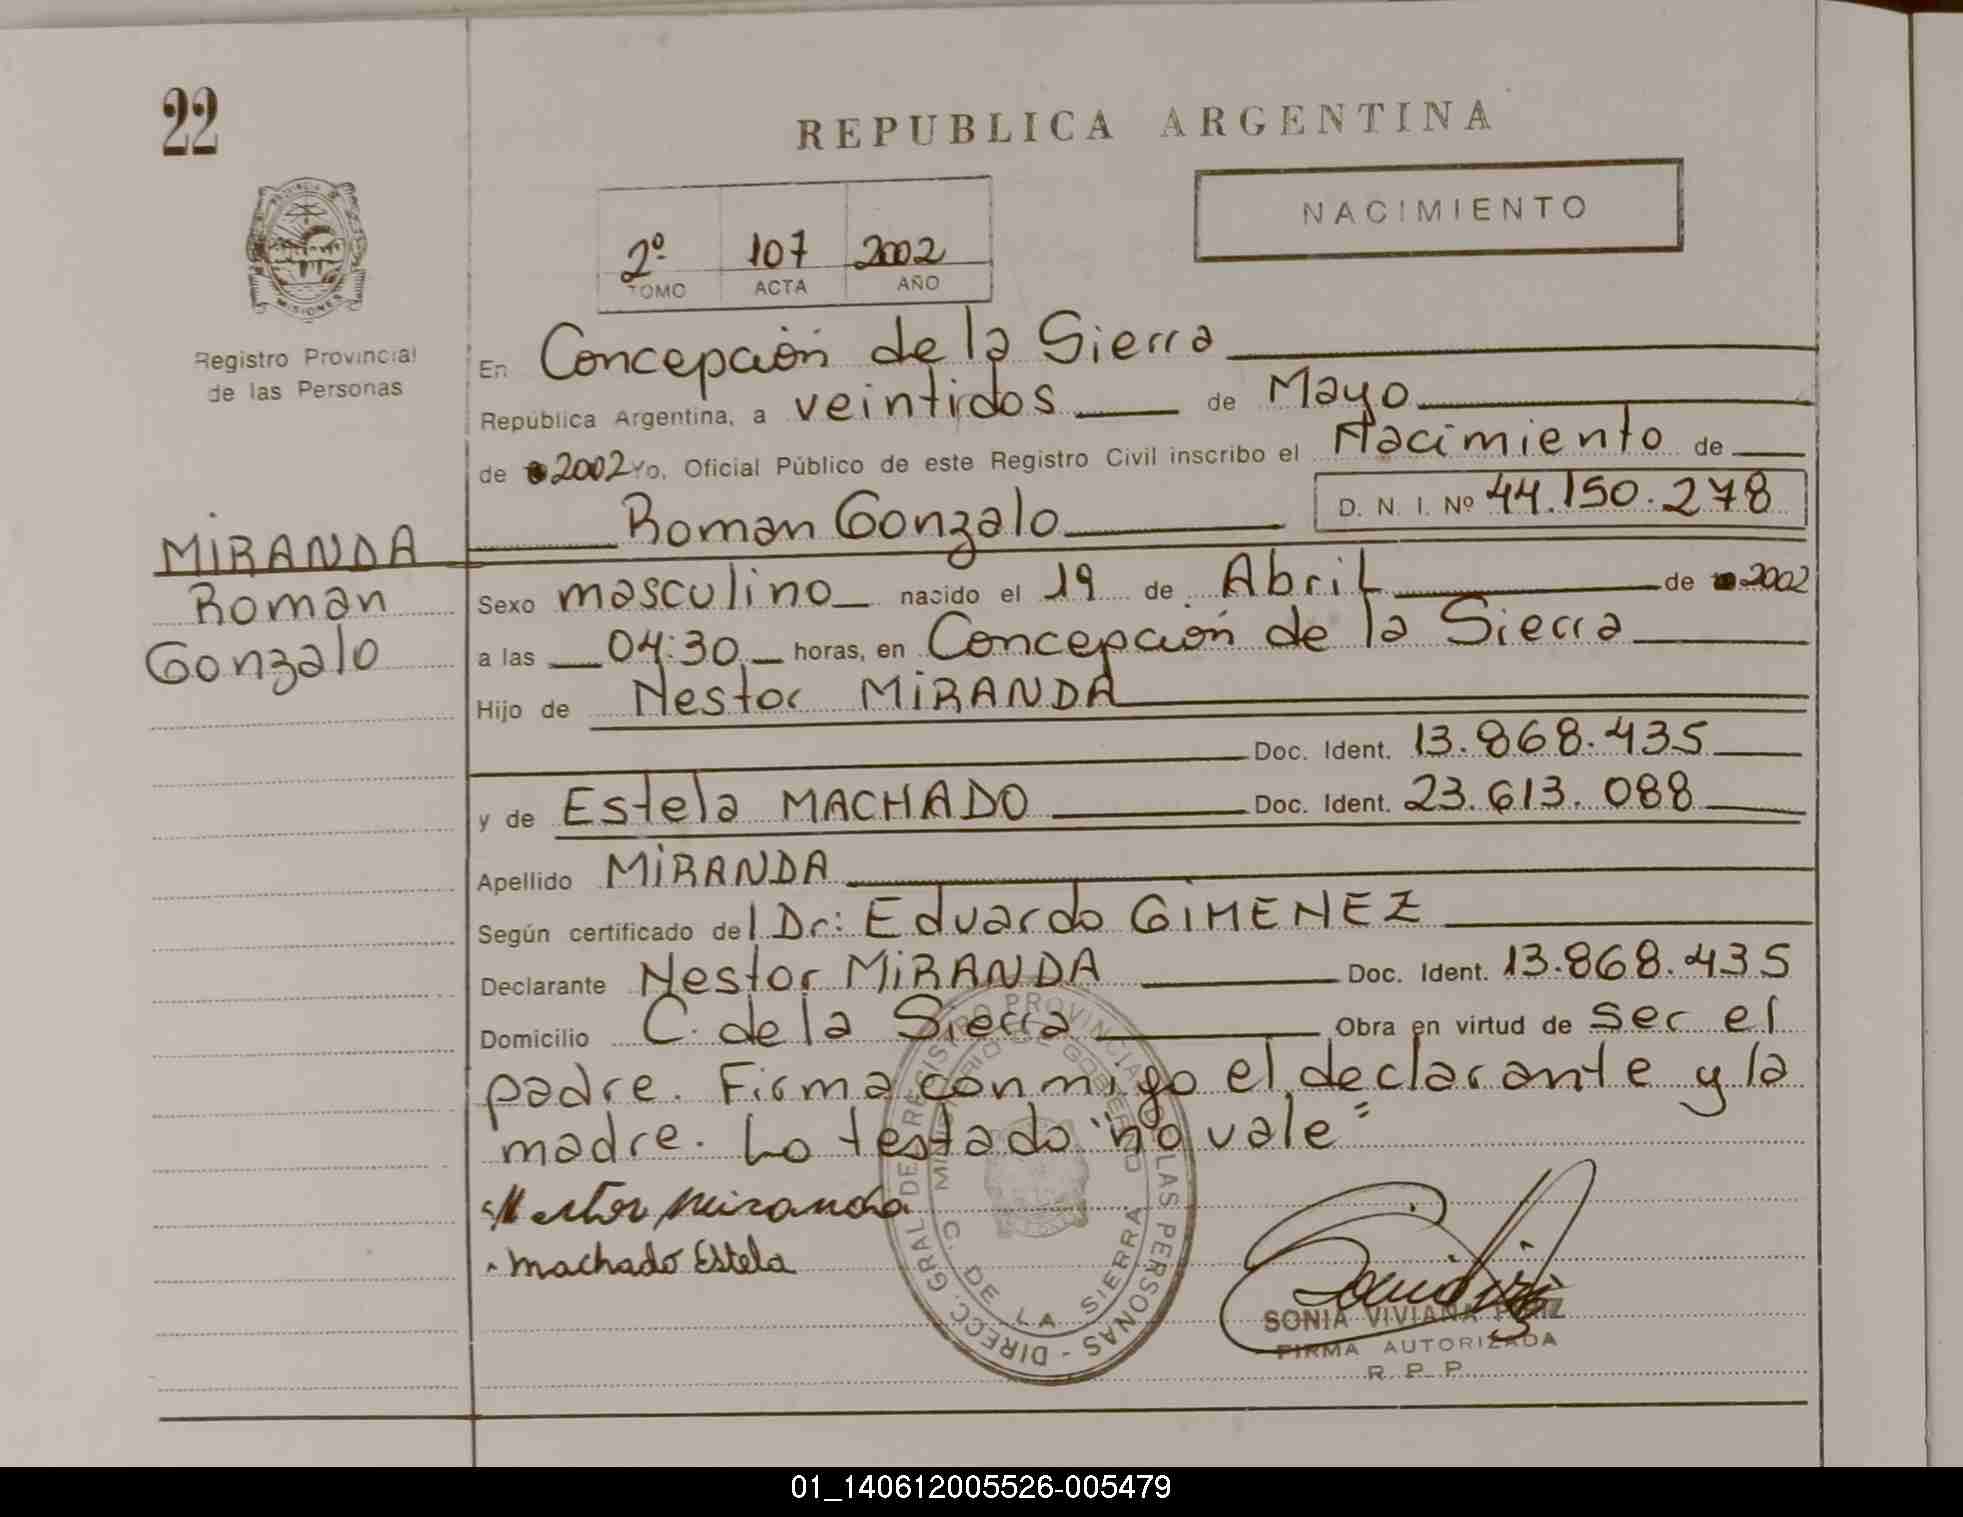 22
REPUBLICA ARGENTINA
NACIMIENTO
2º 107 2002
TOMO ACTA AÑO
PROVINCIA DE MISIONES
Registro Provincial
de las Personas
En Concepción de la Sierra
República Argentina, a veintidos de Mayo
de 2002 Yo, Oficial Público de este Registro Civil inscribo el Nacimiento de
Roman Gonzalo D. N. I. Nº 44.150.278
MIRANDA
Roman
Gonzalo
Sexo masculino nacido el 19 de Abril de 2002
a las 04:30 horas, en Concepción de la Sierra
Hijo de Nestor MIRANDA
Doc. Ident. 13.868.435
y de Estela MACHADO Doc. Ident. 23.613.088
Apellido MIRANDA
Según certificado del Dr: Eduardo GIMENEZ
Declarante Nestor MIRANDA Doc. Ident. 13.868.435
Domicilio C. de la Sierra Obra en virtud de ser el
padre. Firma conmigo el declarante y la
madre. Lo testado "no vale"
Nestor Miranda
Machado Estela
DIRECC. GRAL DE REGISTRO PROVINCIAL DE LAS PERSONAS -
MINISTERIO DE GOBIERNO
C. DE LA SIERRA
SONIA VIVIANA
FIRMA AUTORIZADA
R. P. P.
01_140612005526-005479